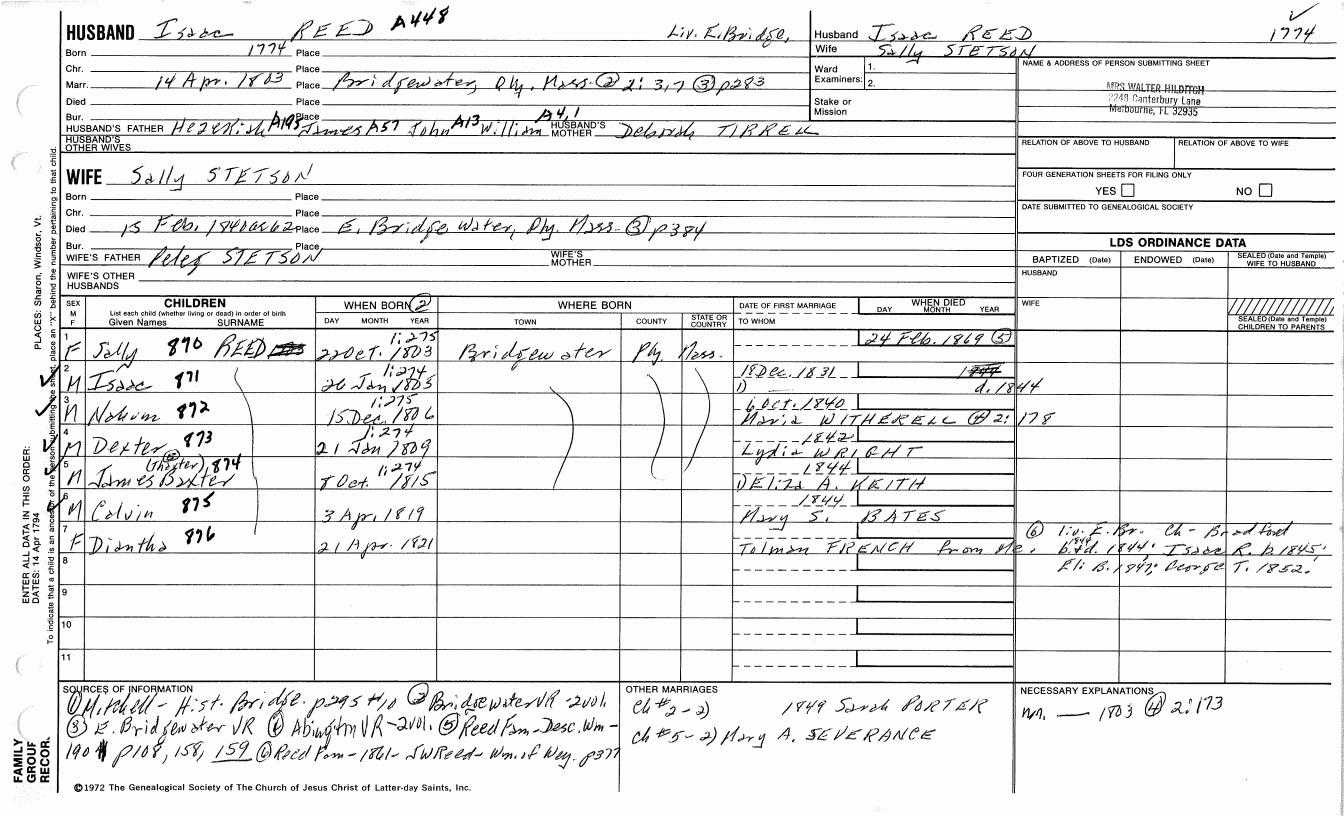 HUSBAND Isaac REED A448 Liv. E. Bridge,
Born 1774 Place
Chr. Place
Marr. 14 Apr. 1803 Place Bridgewater, Ply, Mass. ② 2: 3,7 ③ p283
Died Place
Bur. Place
HUSBAND'S FATHER Hezekiah A195 James A57 John A13 William A4,1 HUSBAND'S MOTHER Deborah TIRRELL
HUSBAND'S OTHER WIVES
Husband Isaac REED 1774
Wife Sally STETSON
Ward Examiners: 1.
2.
Stake or Mission
NAME & ADDRESS OF PERSON SUBMITTING SHEET
MRS WALTER HILDITCH
2249 Canterbury Lane
Melbourne, FL 32935
RELATION OF ABOVE TO HUSBAND RELATION OF ABOVE TO WIFE
FOUR GENERATION SHEETS FOR FILING ONLY
YES NO
DATE SUBMITTED TO GENEALOGICAL SOCIETY
WIFE Sally STETSON
Born Place
Chr. Place
Died 15 Feb. 1840 ae 62 Place E. Bridgewater, Ply. Mass. ③ p384
Bur. Place
WIFE'S FATHER Peleg STETSON WIFE'S MOTHER
WIFE'S OTHER HUSBANDS
LDS ORDINANCE DATA
BAPTIZED (Date) ENDOWED (Date) SEALED (Date and Temple) WIFE TO HUSBAND
HUSBAND
WIFE
SEALED (Date and Temple) CHILDREN TO PARENTS
SEX M F
CHILDREN
List each child (whether living or dead) in order of birth
Given Names SURNAME
WHEN BORN ②
DAY MONTH YEAR
WHERE BORN
TOWN COUNTY STATE OR COUNTRY
DATE OF FIRST MARRIAGE
TO WHOM
WHEN DIED
DAY MONTH YEAR
1 F Sally 870 REED 1:275 22 Oct. 1803 Bridgewater Ply Mass. 24 Feb. 1869 ⑤
2 M Isaac 871 1:274 26 Jan 1805 18 Dec. 1831 1) d. 1844
3 M Nahum 872 1:275 15 Dec. 1806 6 Oct. 1840 Maria WITHERELL ④ 2: 178
4 M Dexter 873 1:274 21 Jan 1809 1842 Lydia WRIGHT
5 M James Baxter (Thaxter) 874 1:274 8 Oct. 1815 1844 1) Eliza A. KEITH
6 M Calvin 875 3 Apr. 1819 1844 Mary S. BATES
7 F Diantha 876 21 Apr. 1821 Tolman FRENCH from Me.
⑥ liv. E. Br. Ch - Bradford
b. & d. 1844; Isaac R. b. 1845;
Eli B. 1847; George T. 1852.
8
9
10
11
SOURCES OF INFORMATION
① Mitchell - Hist. Bridge. p295 #10 ② Bridgewater VR - 2vol.
③ E. Bridgewater VR ④ Abington VR - 2vol. ⑤ Reed Fam - Desc. Wm -
190 p108, 158, 159 ⑥ Reed Fam - 1861 - JWReed - Wm. of Wey. p377
OTHER MARRIAGES
Ch #2 - 2) 1849 Sarah PORTER
Ch #5 - 2) Mary A. SEVERANCE
NECESSARY EXPLANATIONS
m. — 1803 ④ 2:173
©1972 The Genealogical Society of The Church of Jesus Christ of Latter-day Saints, Inc.
FAMILY GROUP RECOR.
ENTER ALL DATA IN THIS ORDER:
DATES: 14 Apr 1794
PLACES: Sharon, Windsor, Vt.
To indicate that a child is an ancestor of the person submitting the sheet, place an "X" behind the number pertaining to that child.